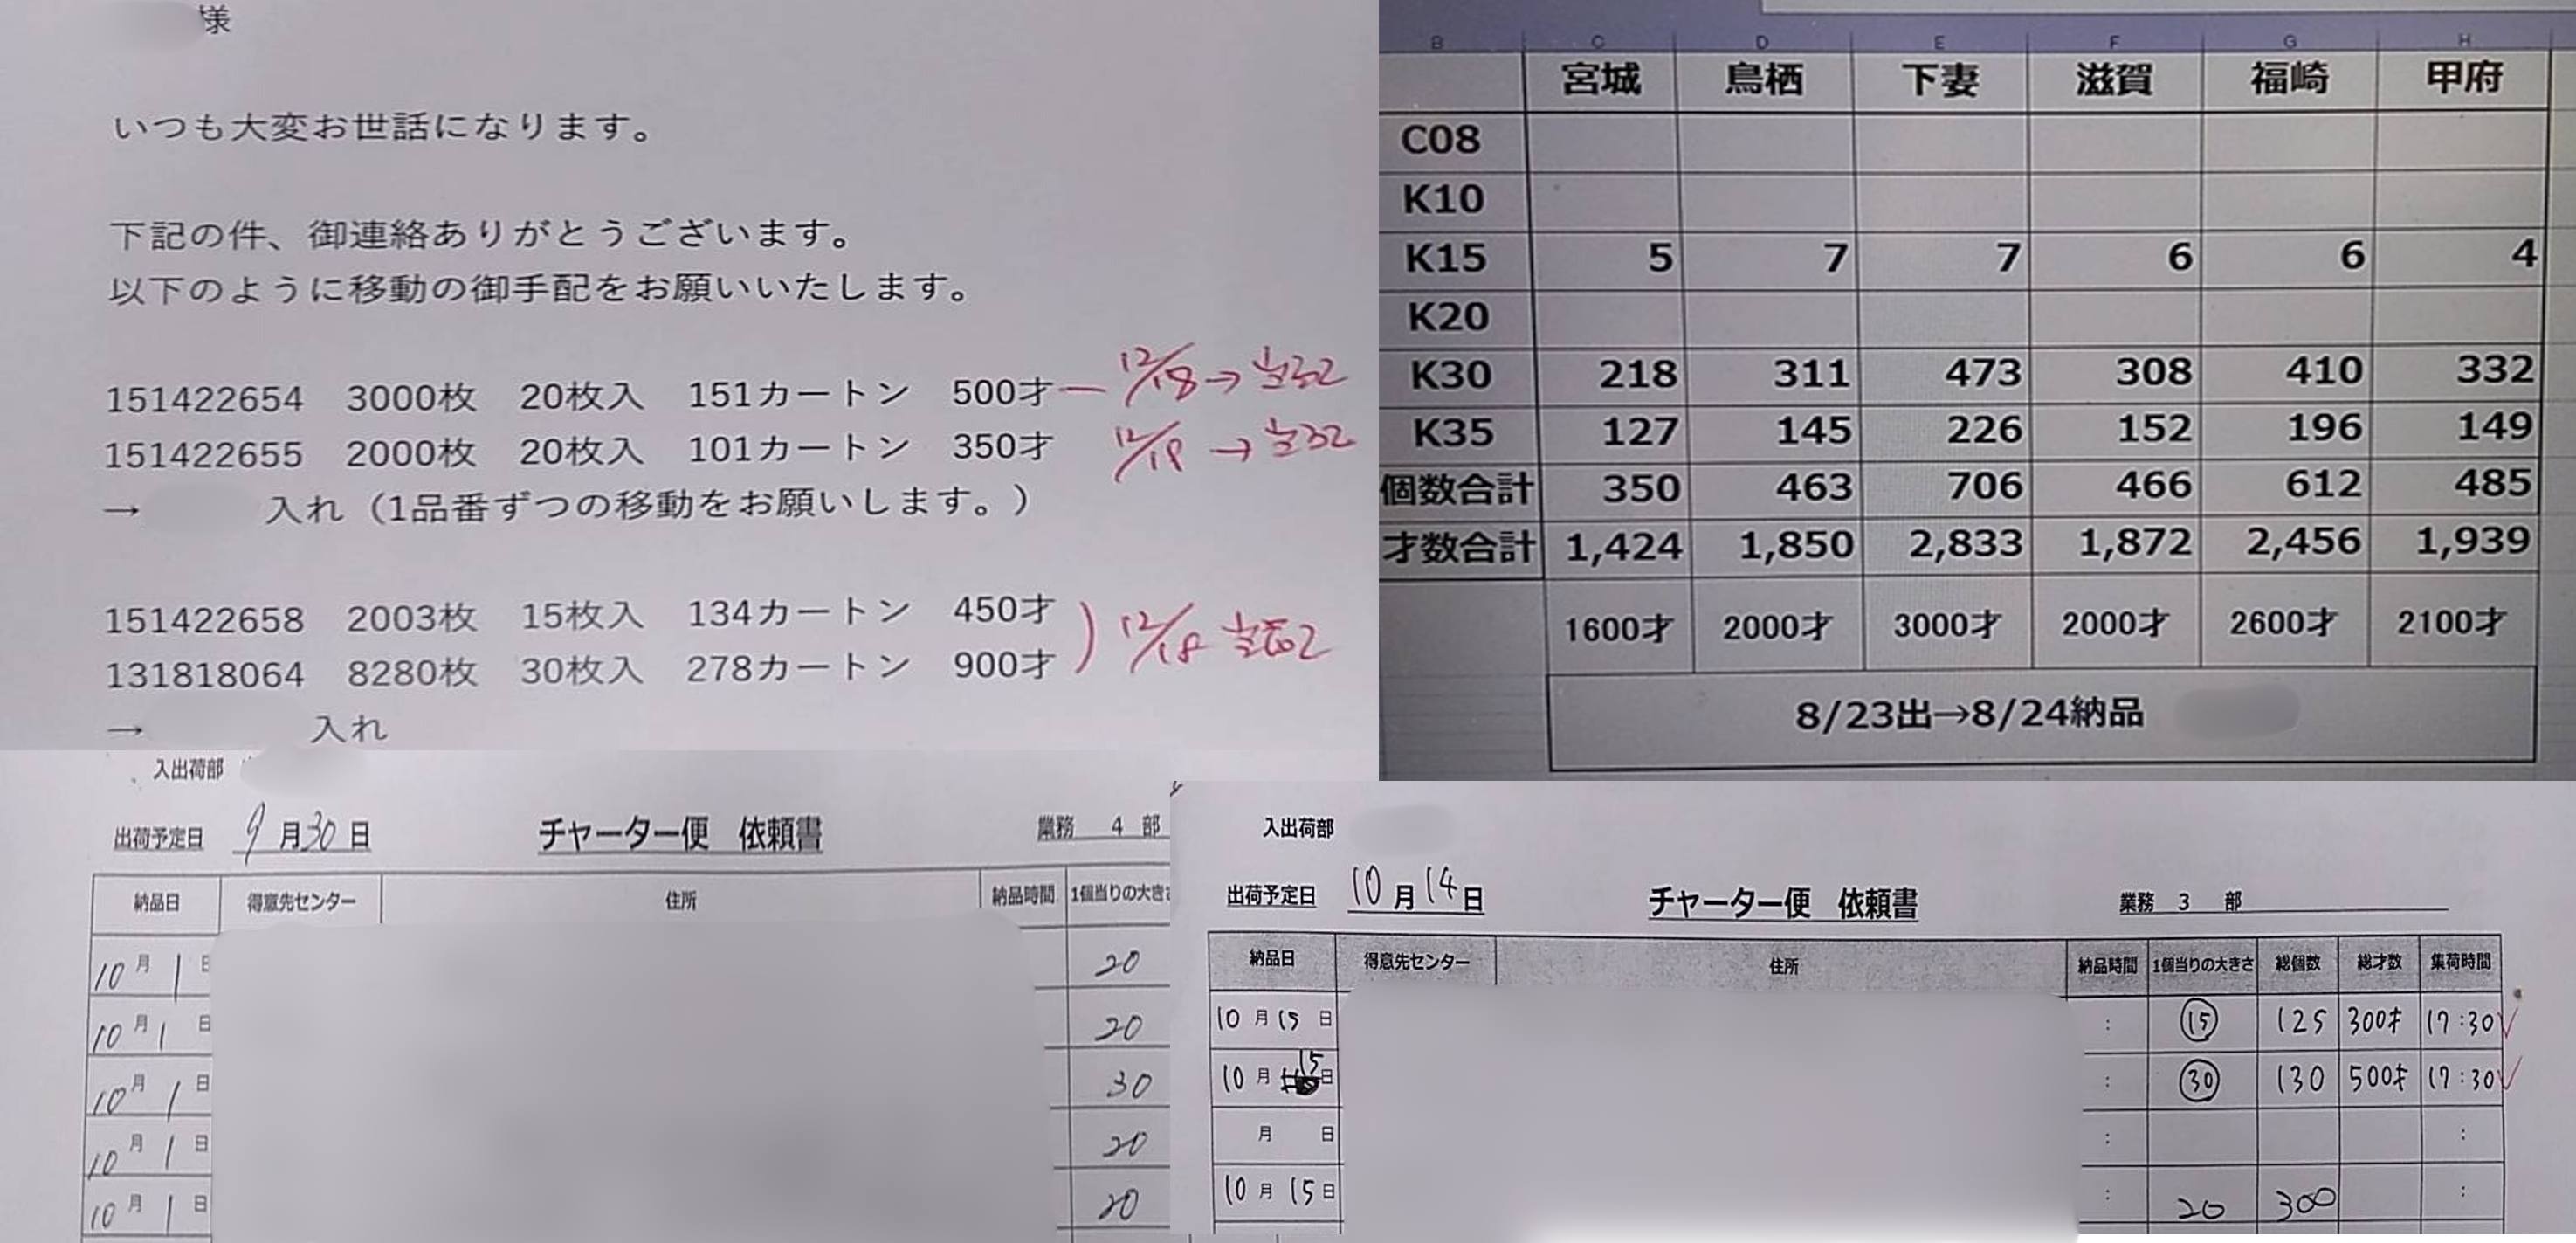 様
いつも大変お世話になります。
下記の件、御連絡ありがとうございます。
以下のように移動の御手配をお願いいたします。
151422654 3000枚 20枚入 151カートン 500才 — 12/18→
151422655 2000枚 20枚入 101カートン 350才 12/18→
→ 入れ（1品番ずつの移動をお願いします。）
151422658 2003枚 15枚入 134カートン 450才
131818064 8280枚 30枚入 278カートン 900才 ) 12/18
→ 入れ
B C D E F G H
宮城 鳥栖 下妻 滋賀 福崎 甲府
C08
K10
K15 5 7 7 6 6 4
K20
K30 218 311 473 308 410 332
K35 127 145 226 152 196 149
個数合計 350 463 706 466 612 485
才数合計 1,424 1,850 2,833 1,872 2,456 1,939
1600才 2000才 3000才 2000才 2600才 2100才
8/23出→8/24納品
入出荷部
出荷予定日 9月30日 チャーター便 依頼書 業務 4 部
納品日 得意先センター 住所 納品時間 1個当りの大きさ
10月1日 20
10月1日 20
10月1日 30
10月1日 20
10月1日 20
入出荷部
出荷予定日 10月14日 チャーター便 依頼書 業務 3 部
納品日 得意先センター 住所 納品時間 1個当りの大きさ 総個数 総才数 集荷時間
10月15日 : ⑮ 125 300才 17:30
10月15日 : ㉚ 130 500才 17:30
月 日 : :
10月15日 : 20 300 :